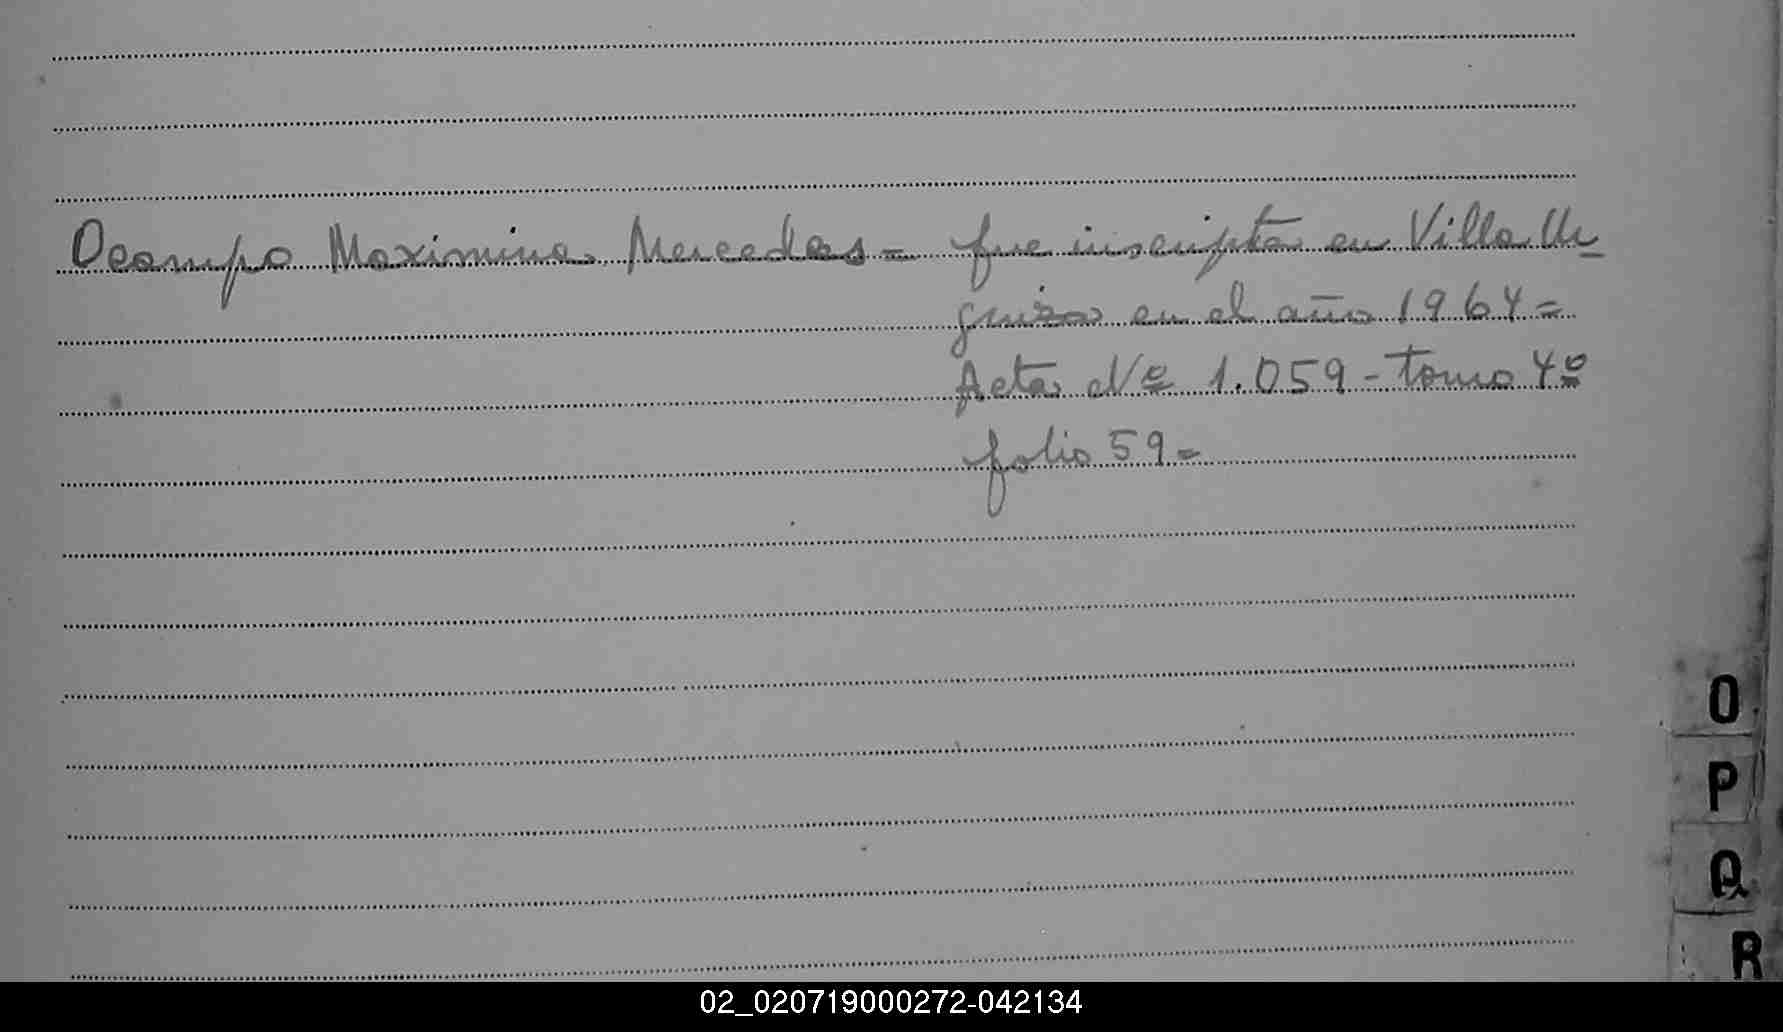 Ocampo Maximina Mercedes = fue inscripta en Villa Ur
quiza en el año 1964 =
Acta Nº 1.059 - tomo 4º
folio 59 =
O
P
Q
R
02_020719000272-042134